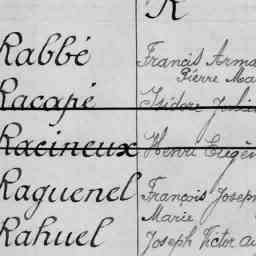 R
Rabbé Francis Arma
Pierre Ma
Racapé Isidore
Racineux Henri Eugèn
Raguenel François Josep
Marie
Rahuel Joseph Victor Au